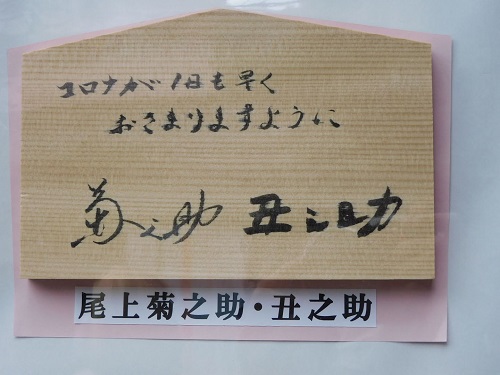 コロナが1日も早く
おさまりますように
菊之助 丑之助
尾上菊之助・丑之助